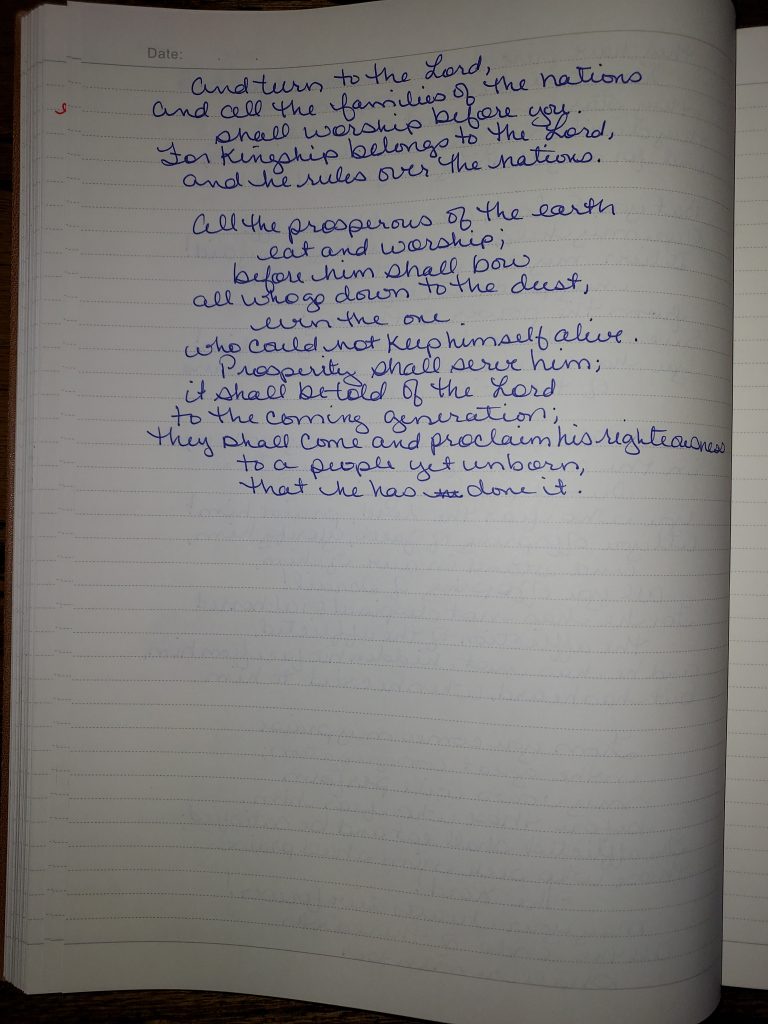 Date:
and turn to the Lord,
and all the families of the nations
shall worship before you.
For Kingship belongs to the Lord,
and he rules over the nations.
All the prosperous of the earth
eat and worship;
before him shall bow
all who go down to the dust,
even the one
who could not keep himself alive.
Prosperity shall serve him;
it shall be told of the Lord
to the coming generation;
they shall come and proclaim his righteousness
to a people yet unborn,
that he has done it.